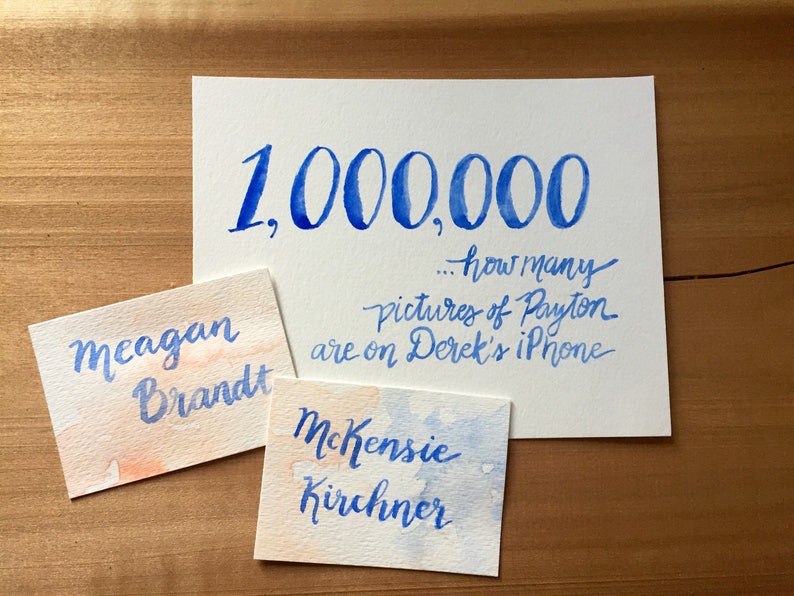 1,000,000
...how many
pictures of Payton
are on Derek's iPhone
Meagan
Brandt
McKensie
Kirchner